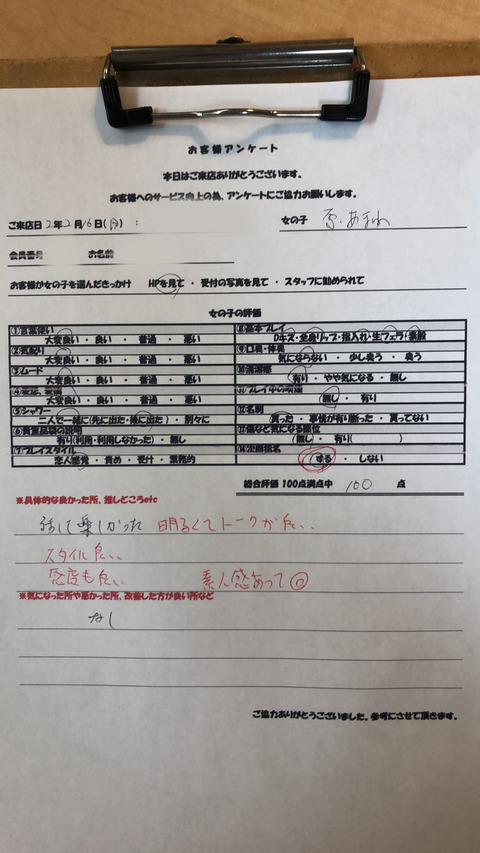 お客様アンケート
本日はご来店ありがとうございます。
お客様へのサービス向上の為、アンケートにご協力お願いします。
ご来店日 2年2月16日(月) : 女の子
会員番号 お名前
お客様が女の子を選んだきっかけ HPを見て ・ 受付の写真を見て ・ スタッフに勧められて
女の子の評価
①言葉使い
大変良い ・ 良い ・ 普通 ・ 悪い
②気配り
大変良い ・ 良い ・ 普通 ・ 悪い
③ムード
大変良い ・ 良い ・ 普通 ・ 悪い
大変良い ・ 良い ・ 普通 ・ 悪い
⑤シャワー
二人で一緒に(先に出た・後に出た) ・ 別々に
有り(利用・利用しなかった) ・ 無し
⑦プレイスタイル
恋人感覚 ・ 責め ・ 受け ・ 業務的
⑧基本プレイ
Dキス・全身リップ・指入れ・生フェラ・素股
⑨口臭・体臭
気にならない ・ 少し臭う ・ 臭う
⑩清潔感
有り ・ やや気になる ・ 無し
無し ・ 有り
⑫名刺
貰った ・ 事情が有り断った ・ 貰ってない
⑬傷など気になる部位
無し ・ 有り( )
⑭次回指名
する ・ しない
総合評価 100点満点中 100 点
※具体的な良かった所、推しどころetc
話して楽しかった 明るくてトークが良い、、
スタイル良い、、
感度も良い、 素人感あって◎
※気になった所や悪かった所、改善した方が良い所など
なし
ご協力ありがとうございました。参考にさせて頂きます。